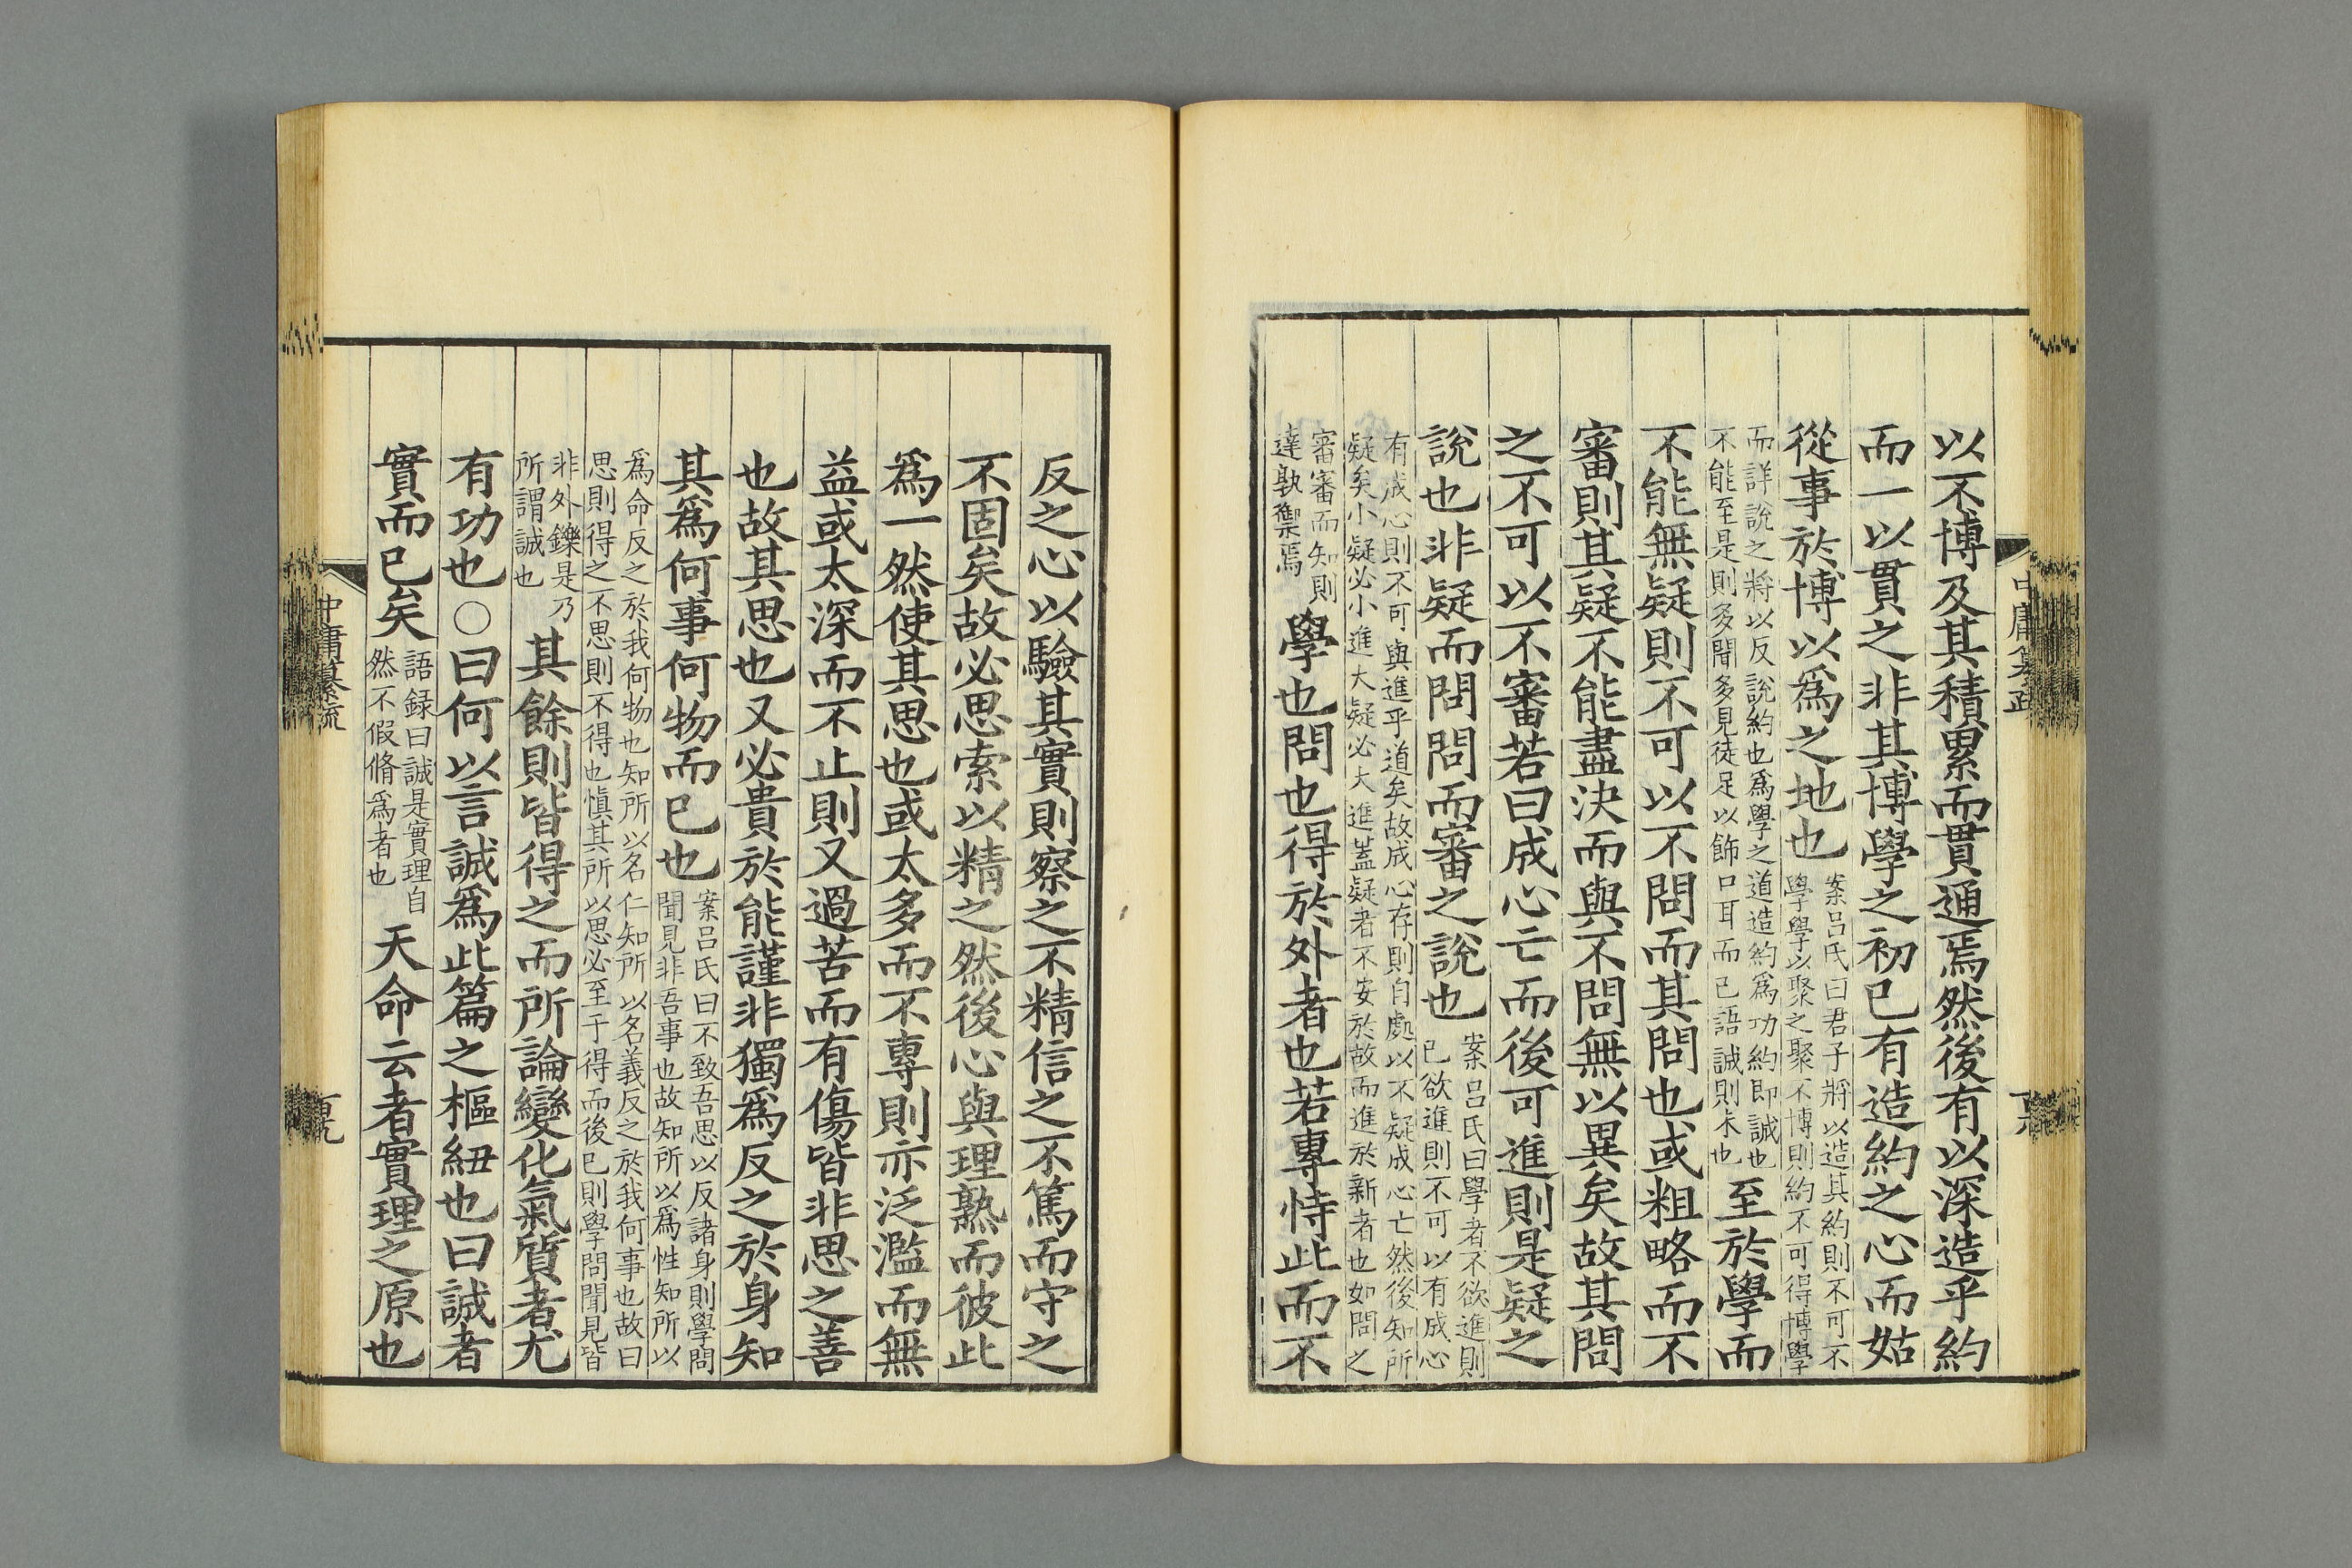 以不博及其積累而貫通焉然後有以深造乎約
而一以貫之非其博學之初已有造約之心而姑
從事於博以爲之地也
案呂氏曰君子將以造其約則不可不
學學以聚之聚不博則約不可得博學
而詳說之將以反說約也爲學之道造約爲功約即誠也
不能至是則多聞多見徒足以飾口耳而已語誠則未也
至於學而
不能無疑則不可以不問而其問也或粗略而不
審則其疑不能盡決而與不問無以異矣故其問
之不可以不審若曰成心亡而後可進則是疑之
說也非疑而問問而審之說也
案呂氏曰學者不欲進則
已欲進則不可以有成心
有成心則不可與進乎道矣故成心存則自處以不疑成心亡然後知所
疑矣小疑必小進大疑必大進蓋疑者不安於故而進於新者也如問之
審審而知則
達孰禦焉
學也問也得於外者也若專恃此而不
反之心以驗其實則察之不精信之不篤而守之
不固矣故必思索以精之然後心與理熟而彼此
爲一然使其思也或太多而不專則亦泛濫而無
益或太深而不止則又過苦而有傷皆非思之善
也故其思也又必貴於能謹非獨爲反之於身知
其爲何事何物而已也
案呂氏曰不致吾思以反諸身則學問
聞見非吾事也故知所以爲性知所以
爲命反之於我何物也知所以名仁知所以名義反之於我何事也故曰
思則得之不思則不得也慎其所以思必至于得而後已則學問聞見皆
非外鑠是乃
所謂誠也
其餘則皆得之而所論變化氣質者尤
有功也○曰何以言誠爲此篇之樞紐也曰誠者
實而已矣
語録曰誠是實理自
然不假脩爲者也
天命云者實理之原也
中庸纂疏